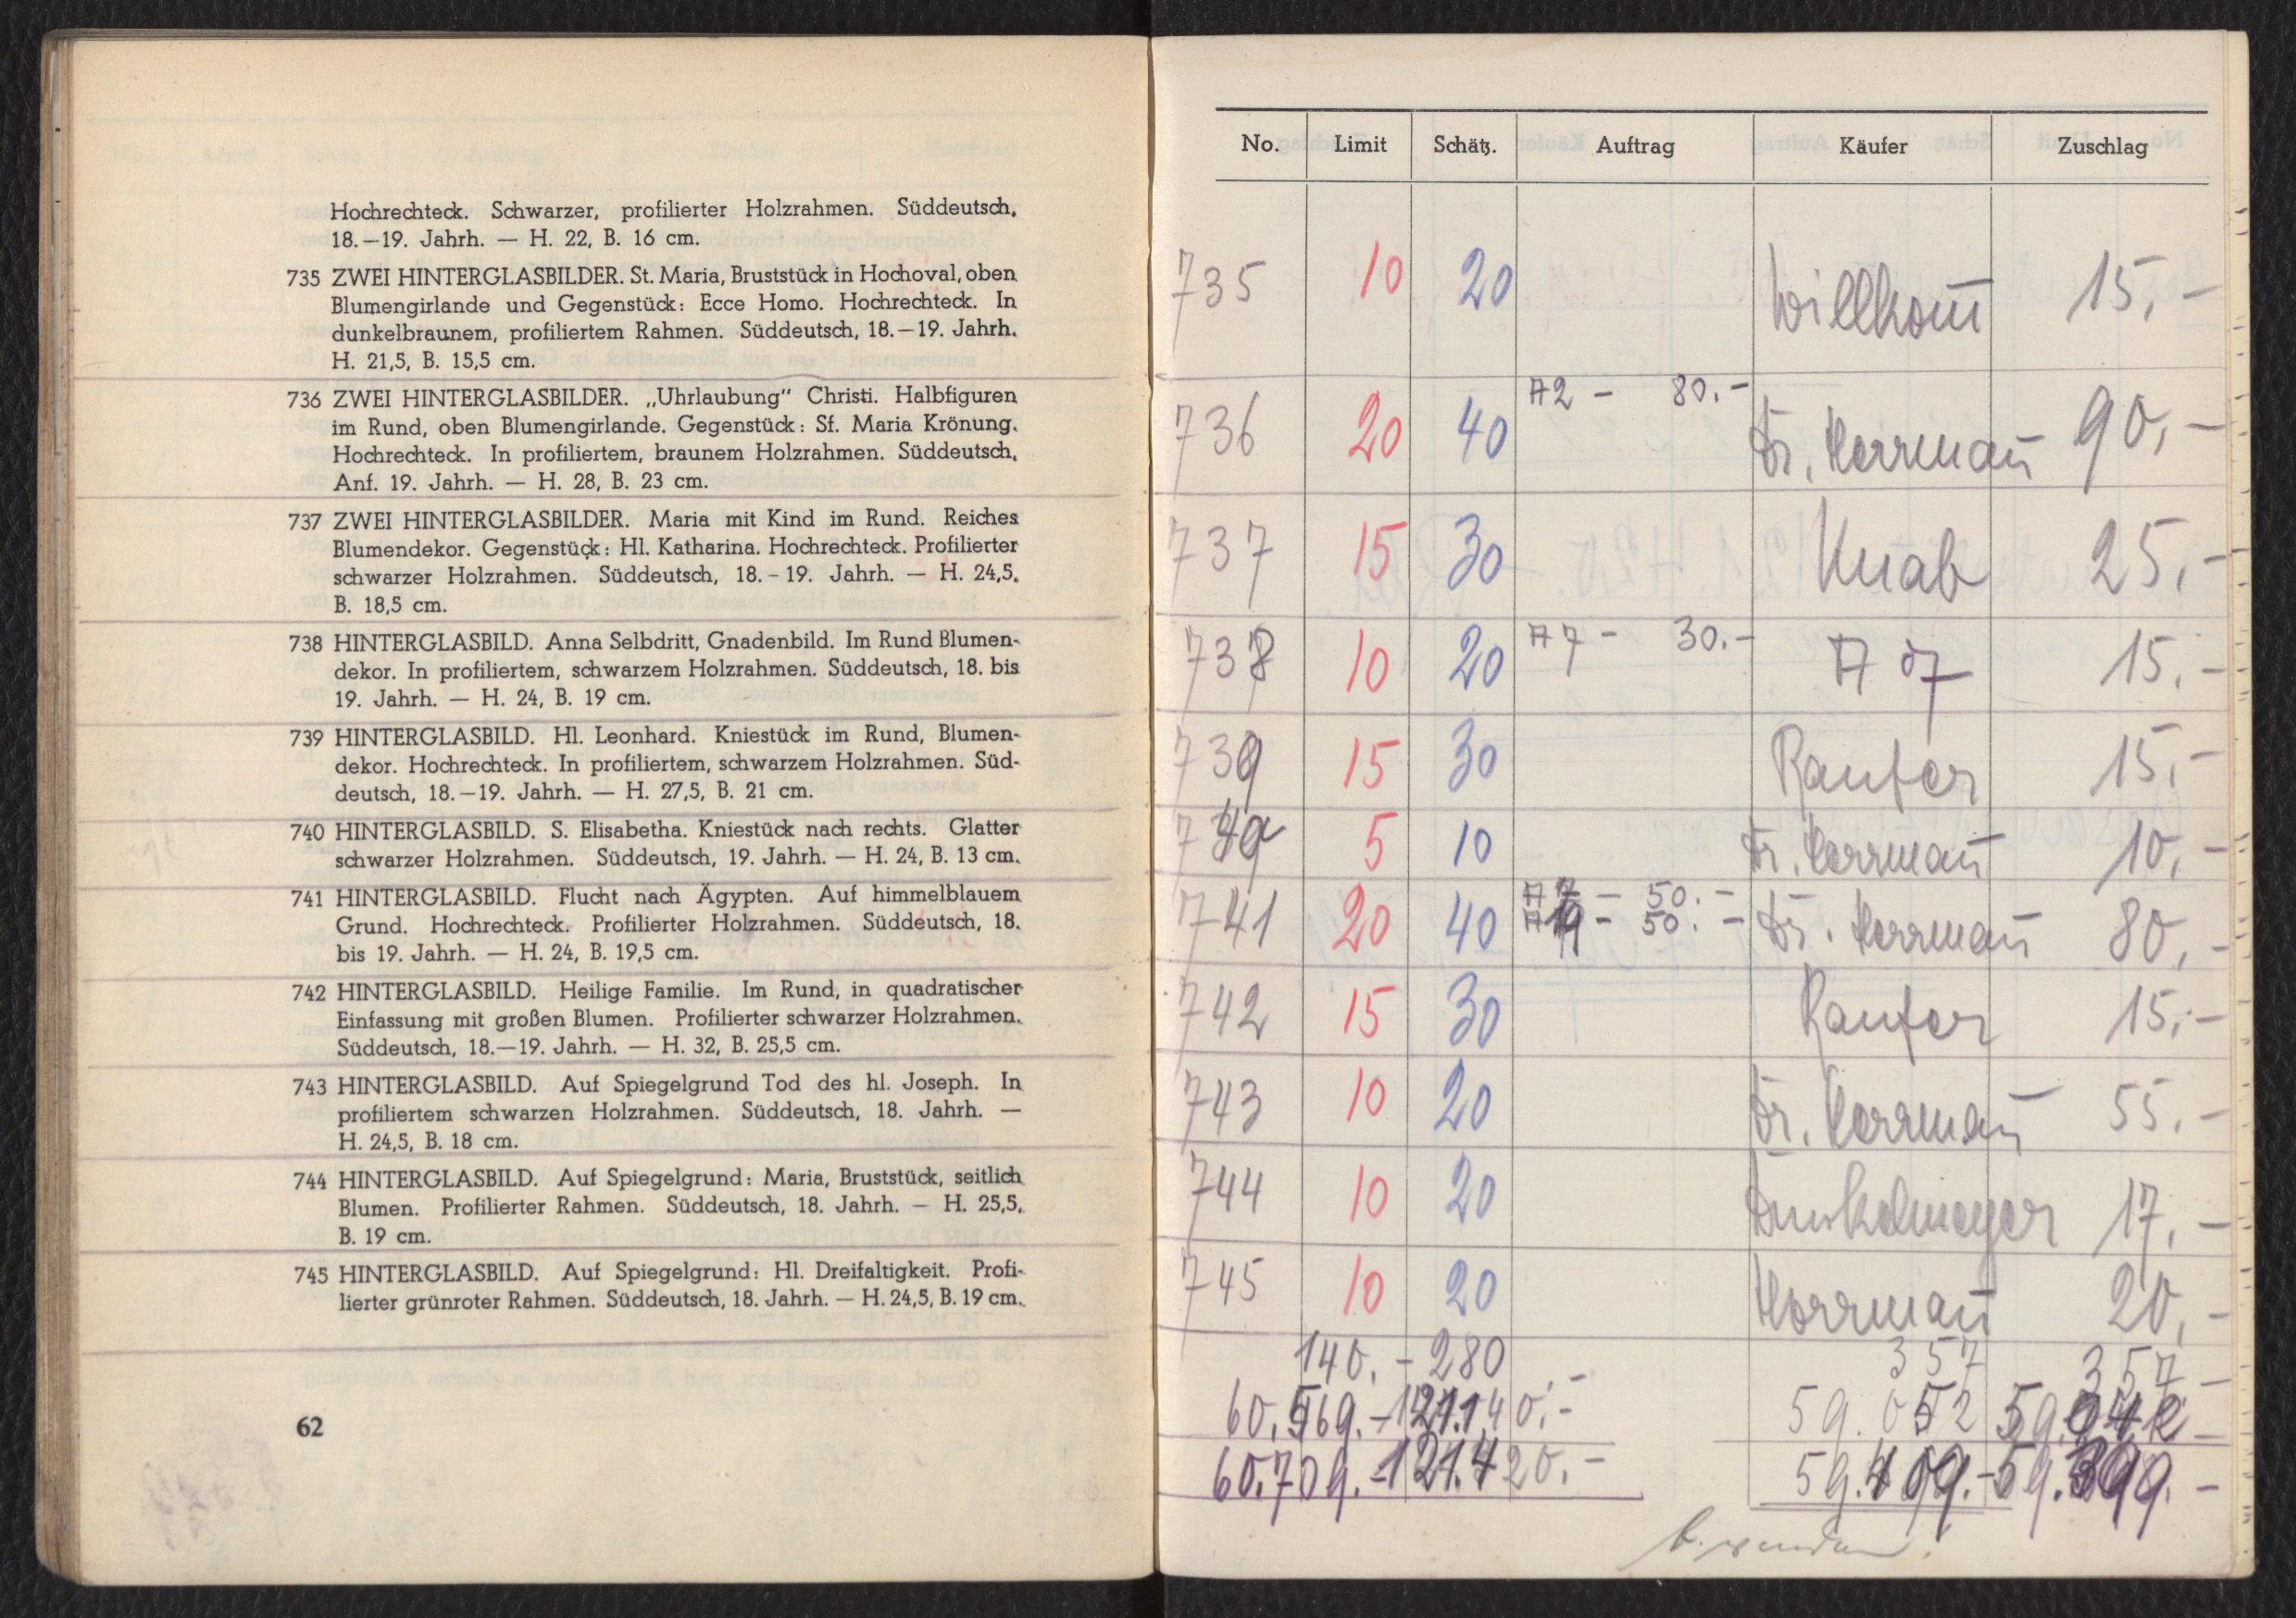 Hochrechteck. Schwarzer, profilierter Holzrahmen. Süddeutsch,
18.—19. Jahrh. — H. 22, B. 16 cm.
735 ZWEI HINTERGLASBILDER. St. Maria, Bruststück in Hochoval, oben
Blumengirlande und Gegenstück: Ecce Homo. Hochrechteck. In
dunkelbraunem, profiliertem Rahmen. Süddeutsch, 18.—19. Jahrh.
H. 21,5, B. 15,5 cm.
736 ZWEI HINTERGLASBILDER. „Uhrlaubung“ Christi. Halbfiguren
im Rund, oben Blumengirlande. Gegenstück: Sf. Maria Krönung.
Hochrechteck. In profiliertem, braunem Holzrahmen. Süddeutsch,
Anf. 19. Jahrh. — H. 28, B. 23 cm.
737 ZWEI HINTERGLASBILDER. Maria mit Kind im Rund. Reiches
Blumendekor. Gegenstück: Hl. Katharina. Hochrechteck. Profilierter
schwarzer Holzrahmen. Süddeutsch, 18.-19. Jahrh. — H. 24,5,
B. 18,5 cm.
738 HINTERGLASBILD. Anna Selbdritt, Gnadenbild. Im Rund Blumen-
dekor. In profiliertem, schwarzem Holzrahmen. Süddeutsch, 18. bis
19. Jahrh. — H. 24, B. 19 cm.
739 HINTERGLASBILD. Hl. Leonhard. Kniestück im Rund, Blumen-
dekor. Hochrechteck. In profiliertem, schwarzem Holzrahmen. Süd-
deutsch, 18.—19. Jahrh. — H. 27,5, B. 21 cm.
740 HINTERGLASBILD. S. Elisabetha. Kniestück nach rechts. Glatter
schwarzer Holzrahmen. Süddeutsch, 19. Jahrh. — H. 24, B. 13 cm.
741 HINTERGLASBILD. Flucht nach Ägypten. Auf himmelblauem
Grund. Hochrechteck. Profilierter Holzrahmen. Süddeutsch, 18.
bis 19. Jahrh. — H. 24, B. 19,5 cm.
742 HINTERGLASBILD. Heilige Familie. Im Rund, in quadratischer
Einfassung mit großen Blumen. Profilierter schwarzer Holzrahmen.
Süddeutsch, 18.—19. Jahrh. — H. 32, B. 25,5 cm.
743 HINTERGLASBILD. Auf Spiegelgrund Tod des hl. Joseph. In
profiliertem schwarzen Holzrahmen. Süddeutsch, 18. Jahrh. —
H. 24,5, B. 18 cm.
744 HINTERGLASBILD. Auf Spiegelgrund: Maria, Bruststück, seitlich
Blumen. Profilierter Rahmen. Süddeutsch, 18. Jahrh. — H. 25,5,
B. 19 cm.
745 HINTERGLASBILD. Auf Spiegelgrund: Hl. Dreifaltigkeit. Profi-
lierter grünroter Rahmen. Süddeutsch, 18. Jahrh. — H. 24,5, B. 19 cm.
62
No. Limit Schätz. Auftrag Käufer Zuschlag
735 10 20 15,-
736 20 40 A2 - 80.- Dr. Herrmann 90,-
737 15 30 Knab 25,-
738 10 20 A7 - 30.- 15.-
739 15 30 15,-
740 5 10 Dr. Herrmann 10,-
741 20 40 50.- Dr. Herrmann 80,-
50.-
742 15 30 15,-
743 10 20 Dr. Herrmann 55.-
744 10 20 Dunkelmeyer 17,-
745 10 20 Herrmann 20,-
140.- 280.- 357 357.-
60.569.- 121.140.- 59.052
60.709.- 121.420.- 59.409.- 59.399.-